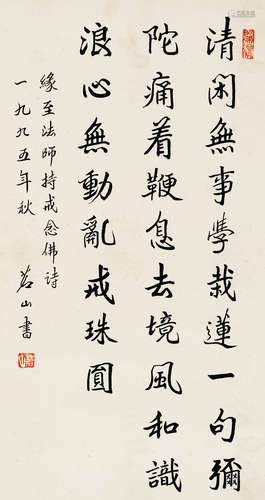 清閑無事學栽蓮一句彌
陀痛着鞭息去境風和識
浪心無動亂戒珠圓
緣至法師持戒念佛詩
一九九五年秋 茗山書